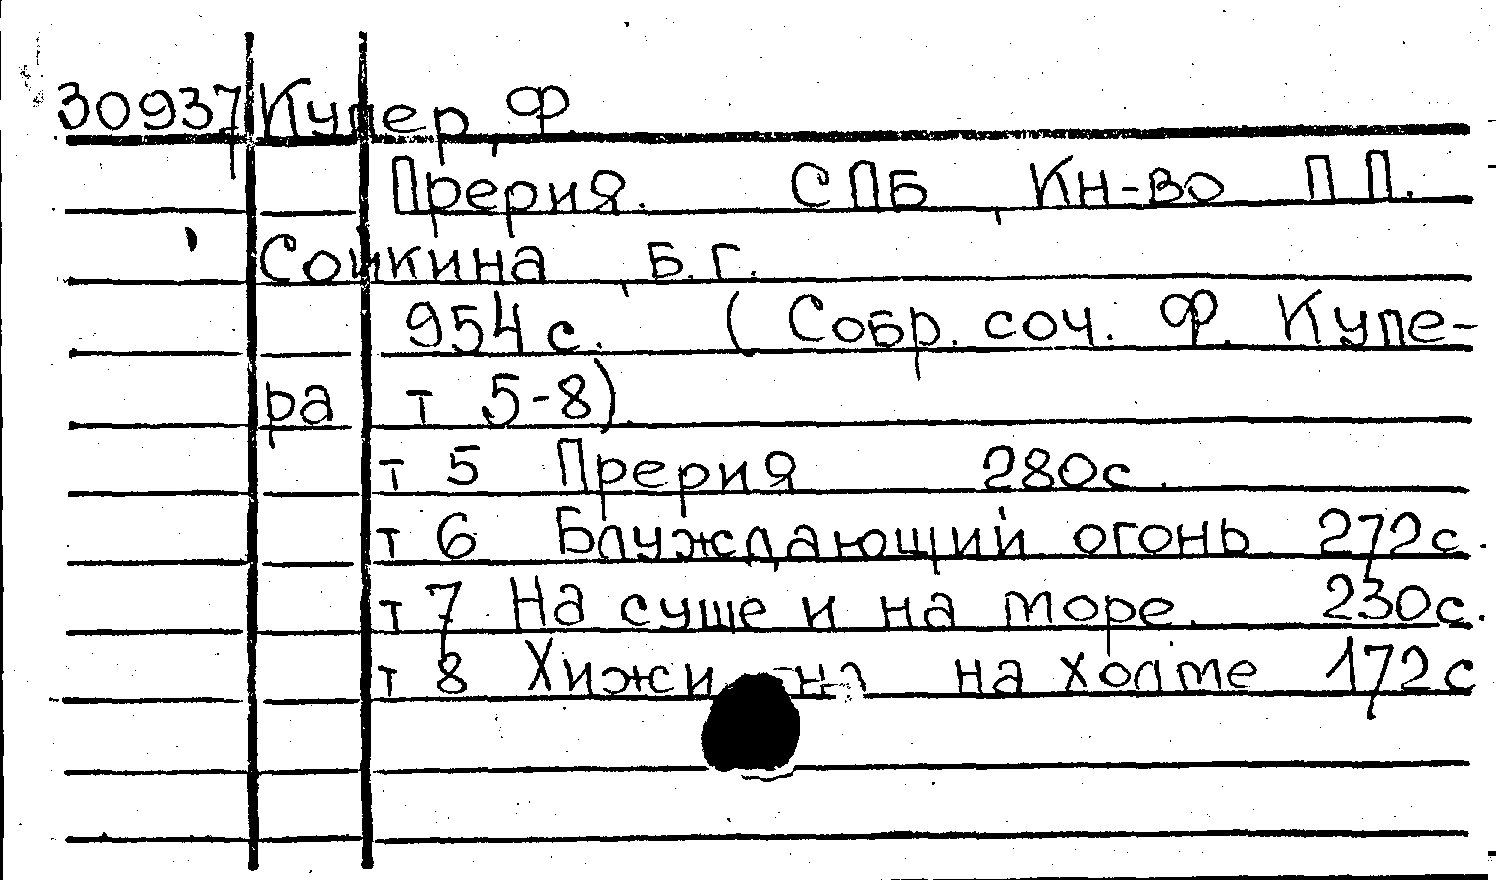 30937 Купер, Ф.
Прерия. СПБ, Кн-во П.П.
Сойкина, Б.г.
954с. (Собр. соч. Ф. Купе-
ра т 5-8).
т 5 Прерия 280с.
т 6 Блуждающий огонь 272с.
т 7 На суше и на море. 230с.
т 8 на холме 172с